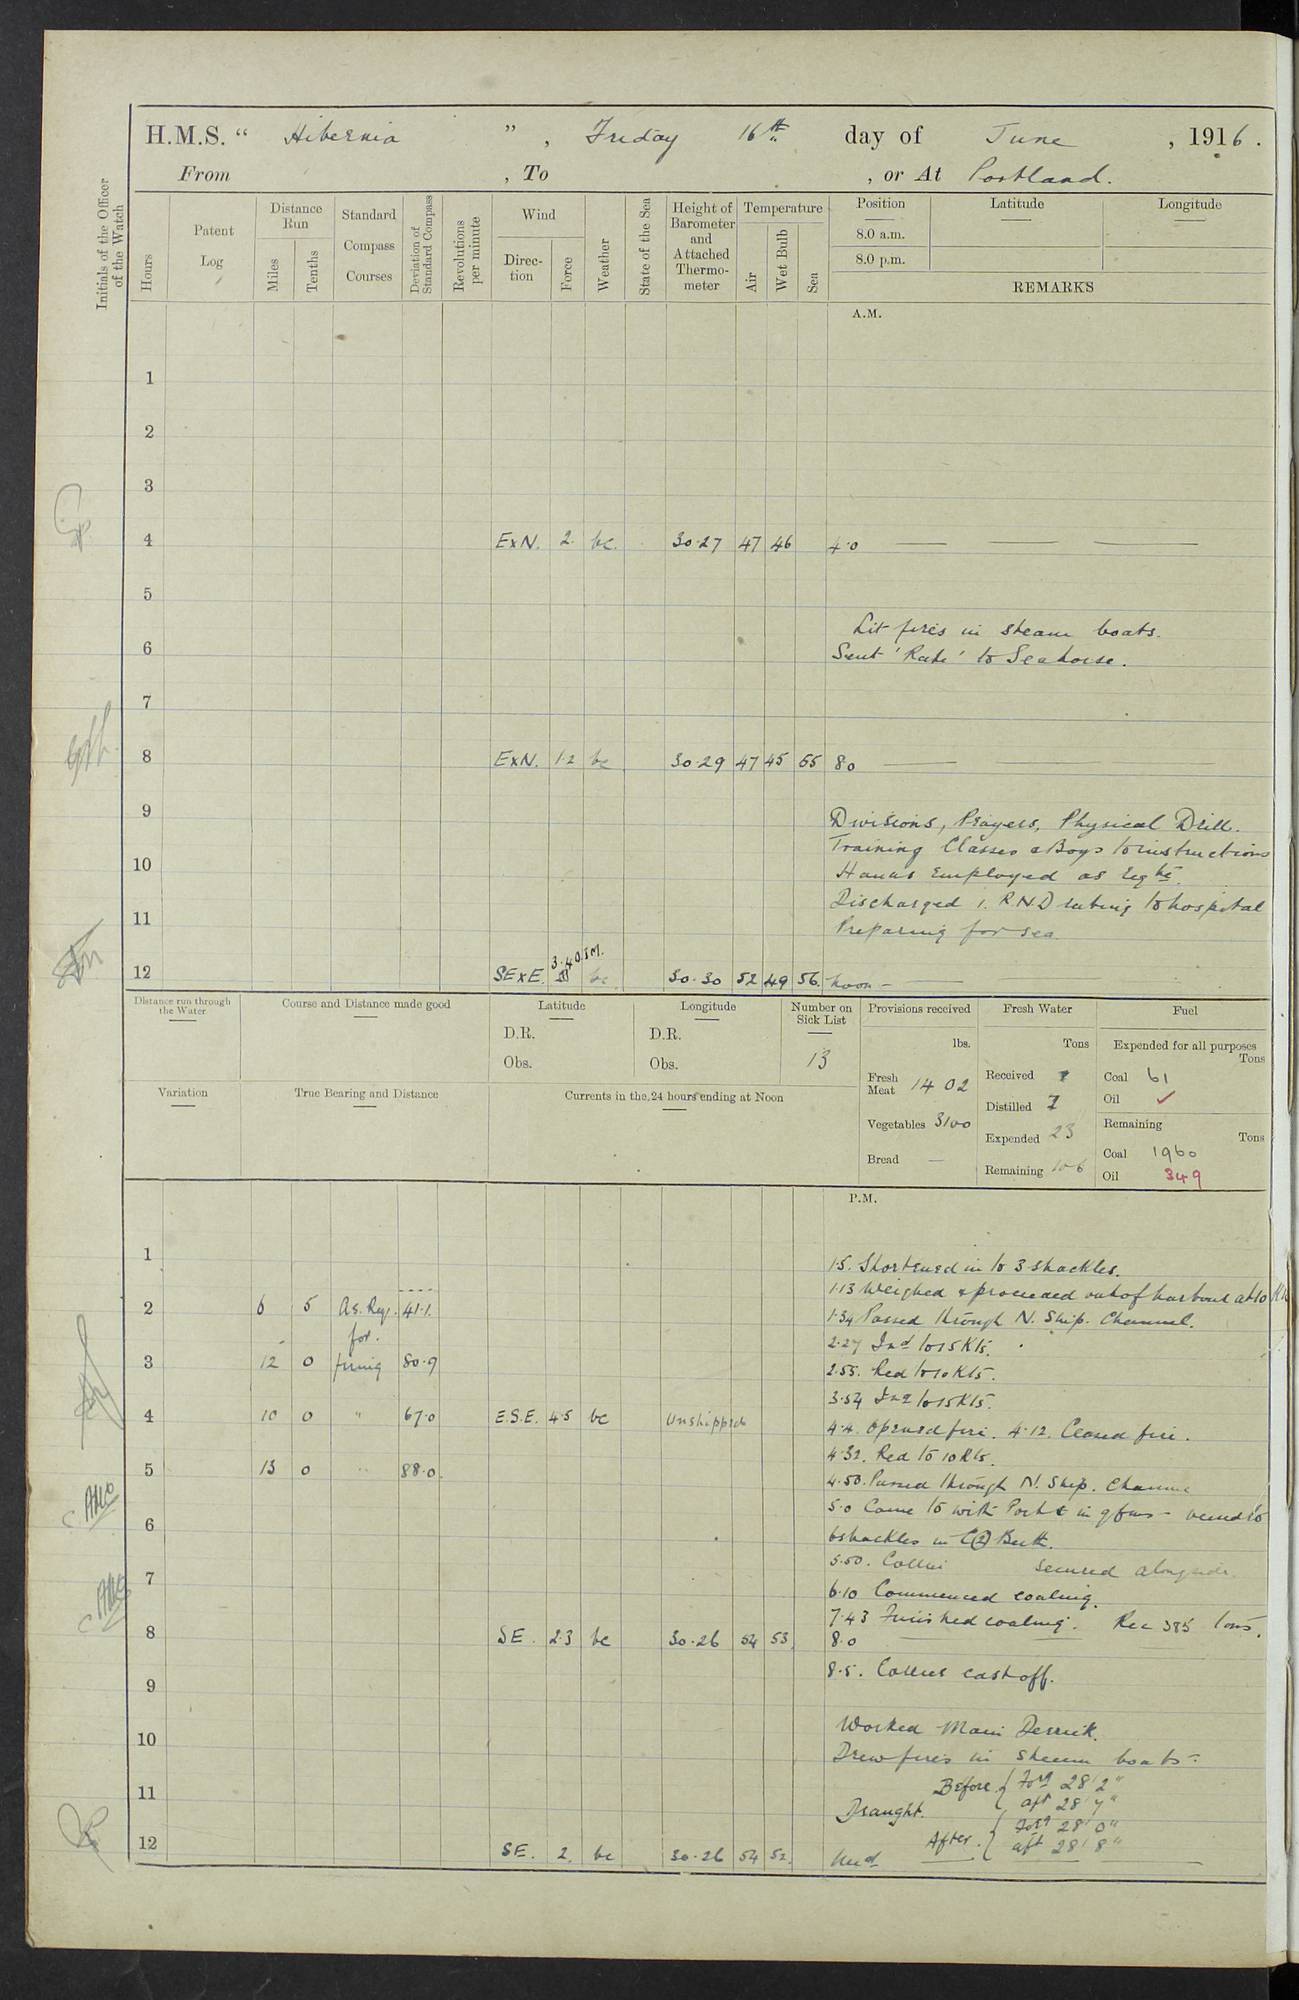 H.M.S. “ Hibernia ” , Friday 16th day of June , 1916 .
From , To , or At Portland.
Initials of the Officer of the Watch
Hours
Patent Log
Distance Run
Miles
Tenths
Standard Compass Courses
Deviation of Standard Compass
Revolutions per minute
Wind
Direction
Force
Weather
State of the Sea
Height of Barometer and Attached Thermometer
Temperature
Air
Wet Bulb
Sea
Position
Latitude
Longitude
8.0 a.m.
8.0 p.m.
REMARKS
A.M.
1
2
3
4 ExN. 2. bc. 30.27 47 46 4.0
5
Lit fires in steam boats.
6 Sent 'Rate' to Seahorse.
7
8 ExN. 1.2 bc 30.29 47 45 55 8.0
9 Divisions, Prayers, Physical Drill.
Training Classes & Boys to instructions
10 Hands Employed as reqte.
Discharged 1. R.N.D rating to hospital
11 Preparing for sea.
12 SExE. 3.4 bc. 30.30 52 49 56. Noon
Distance run through the Water
Course and Distance made good
Latitude
D.R.
Obs.
Longitude
D.R.
Obs.
Number on Sick List
13
Variation
True Bearing and Distance
Currents in the 24 hours ending at Noon
Provisions received
lbs.
Fresh Meat 1402
Vegetables 3100
Bread —
Fresh Water
Tons
Received
Distilled 7
Expended 23
Remaining 106
Fuel
Expended for all purposes
Tons
Coal 61
Oil ✓
Remaining
Tons
Coal 1960
Oil 349
P.M.
1 1.5. Shortened in to 3 shackles.
1.13 Weighed & proceeded out of harbour at 10 Kts
2 6 5 As. Req. 41.1. 1.34 Passed through N. Ship. Channel.
for. 2.27 Incd to 15 Kts.
3 12 0 firing 80.9 2.55. Red to 10 Kts.
3.54 Incd to 15 Kts.
4 10 0 " 67.0 E.S.E. 4.5 bc Unshipped 4.4. Opened fire. 4.12. Ceased fire.
4.32. Red to 10 Kts.
5 13 0 " 88.0. 4.50. Passed through N. Ship. Channel
5.0 Came to with Port in 9 fms - veered to
6 6 shackles in C(2) Berth.
5.50. Collier secured alongside.
7 6.10 Commenced coaling.
7.43 Finished coaling. Rec 385 tons.
8 SE. 2.3 bc 30.26 54 53. 8.0
8.5. Collier cast off.
9
Worked Main Derrick.
10 Drew fires in steam boats.
Before { Ford 28' 2"
11 Draught. aft 28' 7"
After. { Ford 28' 0"
aft 28' 8"
12 SE. 2. bc 30.26 54 52. Mid